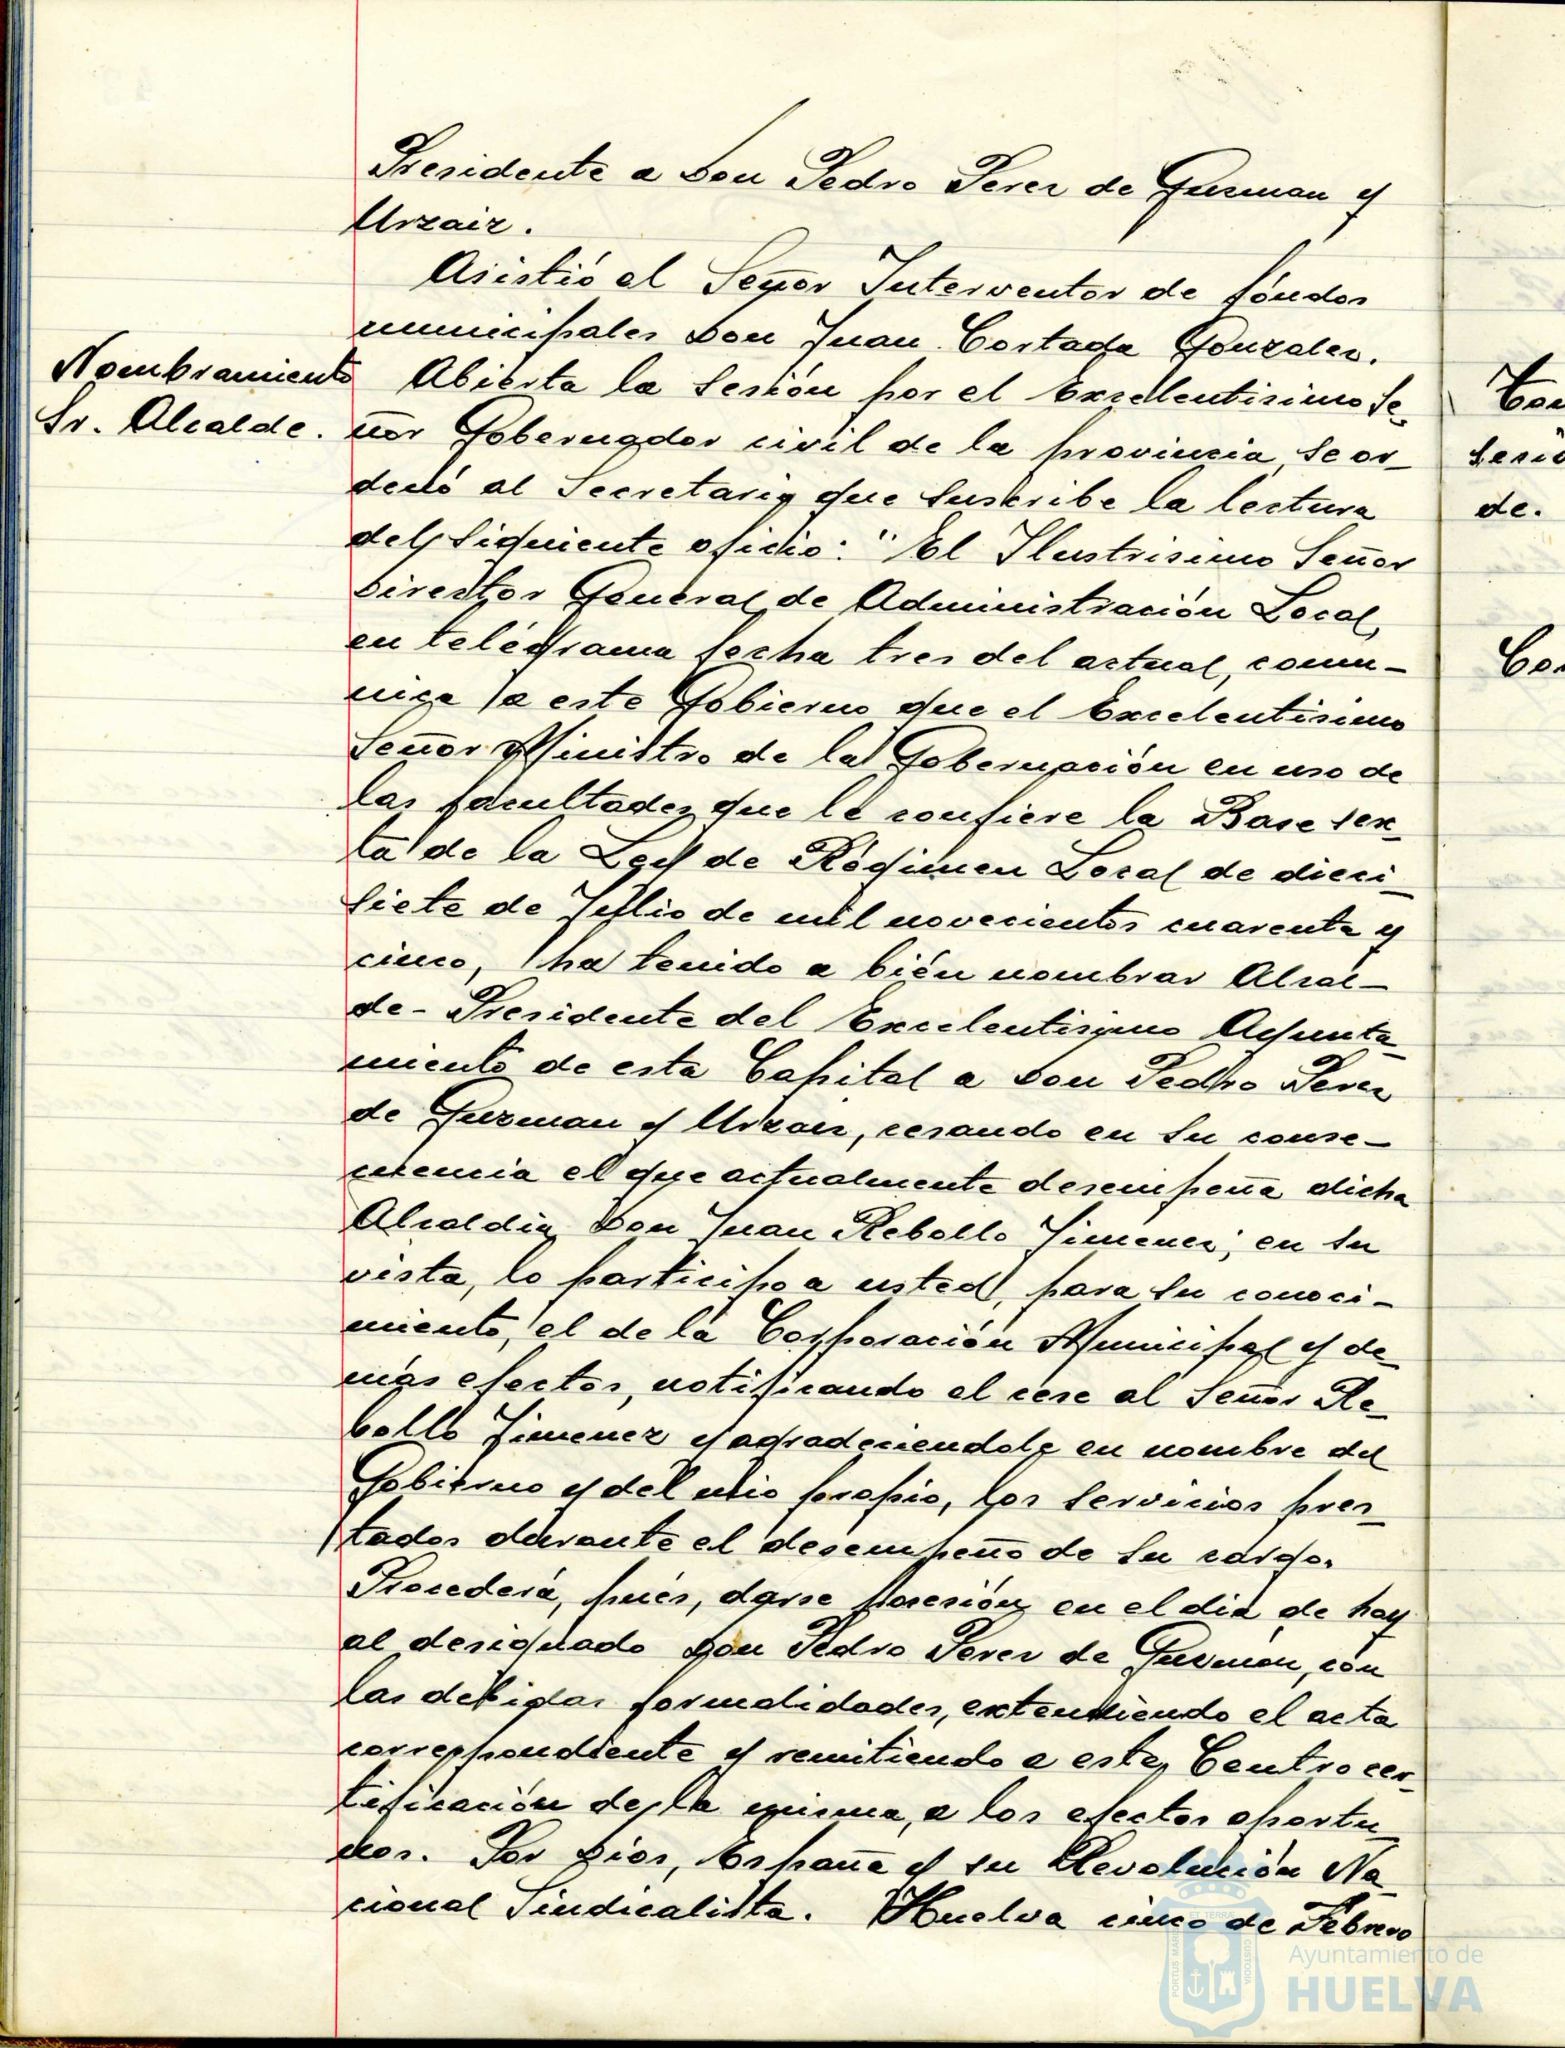 Presidente a Don Pedro Perez de Guzman y
Urzaiz.
Asistió el Señor Interventor de fóndos
municipales Don Juan Cortada Gonzalez.
Nombramiento
Sr. Alcalde.
Abierta la sesión por el Excelentisimo Se-
ñor Gobernador civil de la provincia, se or-
denó al Secretario que suscribe la lectura
del siguiente oficio: "El Ilustrisimo Señor
Director General de Administración Local,
en telégrama fecha tres del actual, comu-
nica a este Gobierno que el Excelentisimo
Señor Ministro de la Gobernación en uso de
las facultades que le confiere la Base sex-
ta de la Ley de Régimen Local de dieci-
siete de Julio de mil novecientos cuarenta y
cinco, ha tenido a bién nombrar Alcal-
de-Presidente del Excelentisimo Ayunta-
miento de esta Capital a Don Pedro Perez
de Guzman y Urzaiz, cesando en su conse-
cuencia el que actualmente desempeña dicha
Alcaldia Don Juan Rebollo Jimenez; en su
vista, lo participo a usted, para su conoci-
miento, el de la Corporación Municipal y de-
más efectos, notificando el cese al Señor Re-
bollo Jimenez y agradeciendole en nombre del
Gobierno y del mio propio, los servicios pres-
tados durante el desempeño de su cargo.
Procederá, pués, darse posesión en el dia de hoy
al designado Don Pedro Perez de Guzmán, con
las debidas formalidades, extendiendo el acta
correspondiente y remitiendo a este Centro cer-
tificación de la misma, a los efectos oportu-
nos. Por Dios, España y su Revolución Na-
cional Sindicalista. Huelva cinco de Febrero
sesió
de.
PORTUS MARIS ET TERRAE CUSTODIA
Ayuntamiento de
HUELVA